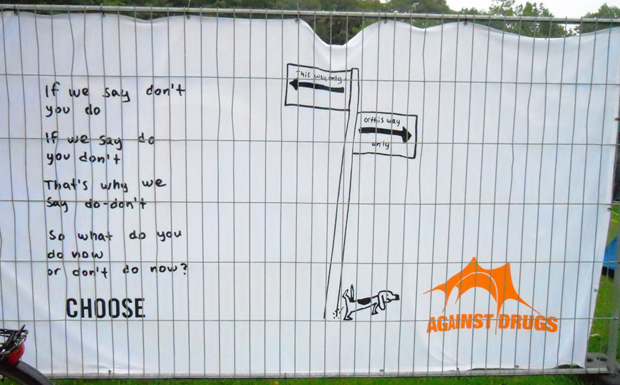 If we say don't
you do
If we say do
you don't
That's why we
say do-don't
So what do you
do now
or don't do now?
CHOOSE
this way only
or this way
only
AGAINST DRUGS